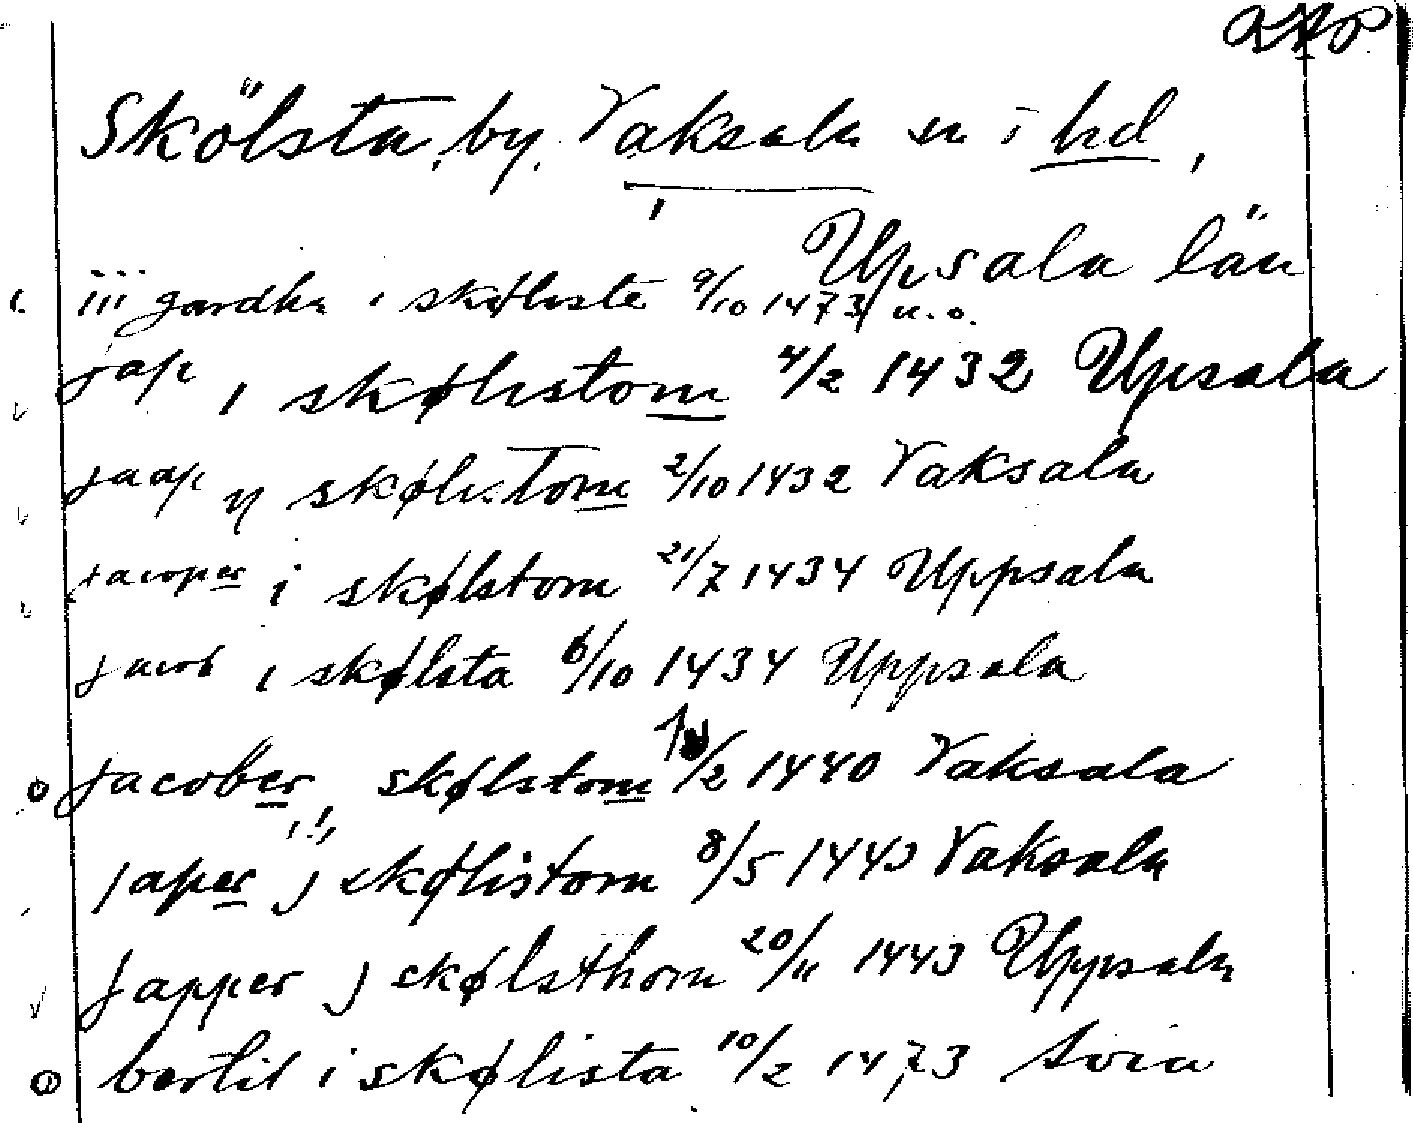 Skölsta, by, Vaksala sn i hd,
Upsala län
iii gardha i skøliste 9/10 1473 u.o.
jap i skølistom 4/2 1432 Upsala
jaap y skølistom 2/10 1432 Vaksala
jacoper i skølstom 21/7 1434 Uppsala
jacob i skølsta 6/10 1434 Uppsala
jacober, skølstom /2 1440 Vaksala
japer j skølistom 8/5 1443 Vaksala
japper j skølsthom 20/11 1443 Uppsala
bertil i skølista 10/2 1473